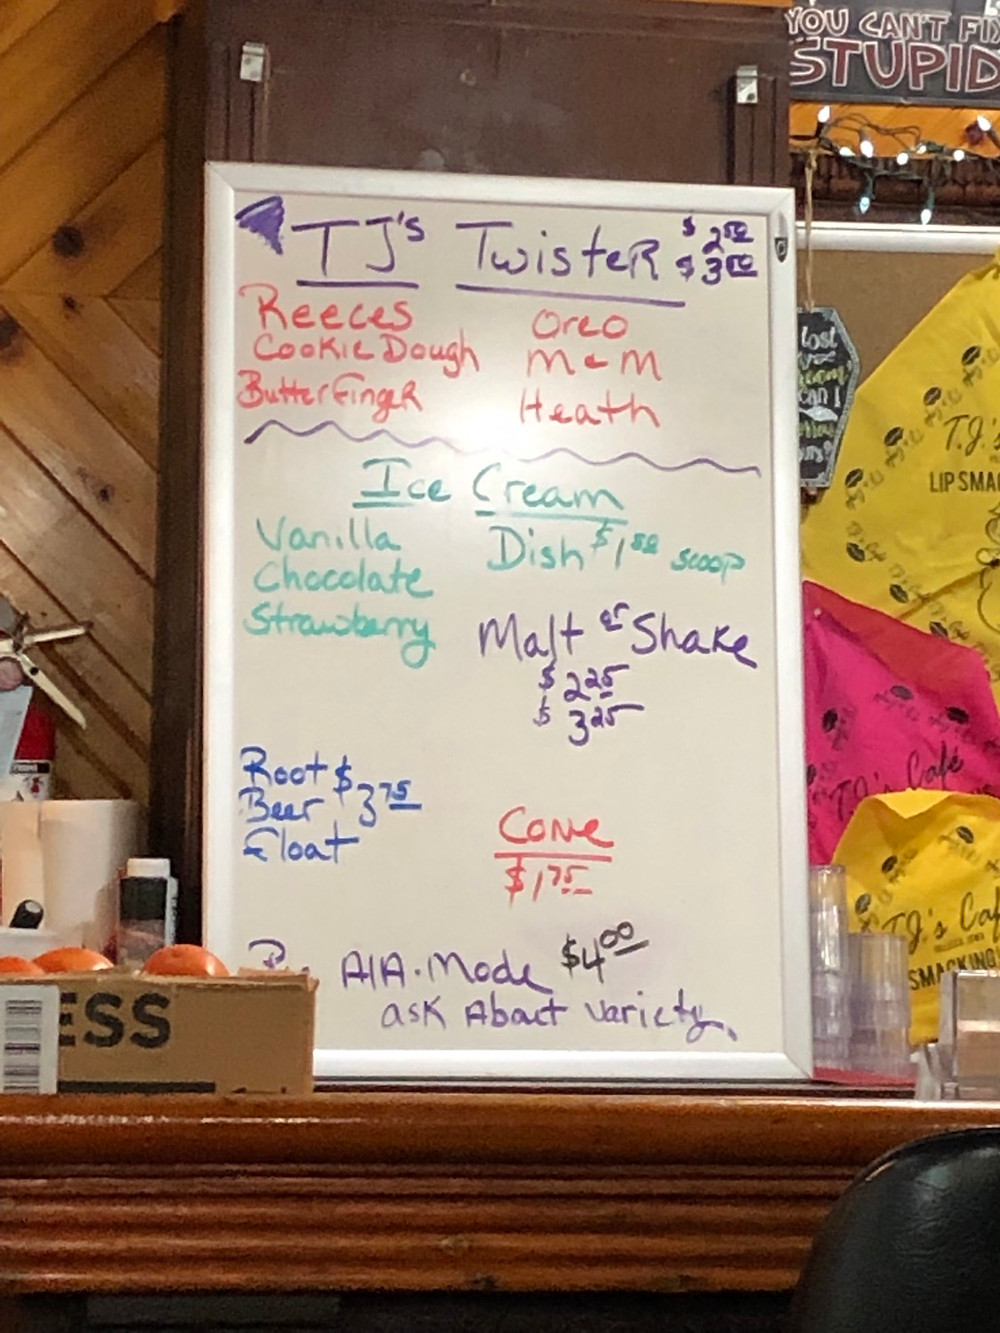 YOU CAN'T FIX
STUPID
TJ's Twister $2 50
$3 50
Reeces Oreo
Cookie Dough M & M
Butter Finger Heath
Ice Cream
Vanilla Dish $1 50 scoop
Chocolate
Strawberry
Malt or Shake
$2 25
$3 25
Root $3 75
Beer
Float
Cone
$1 75
AlA. Mode $4 00
ask About variety.
ESS
lost
can I
T.J.'s
LIP SMA
T.J.'s Café
T.J.'s Caf
SMACKING